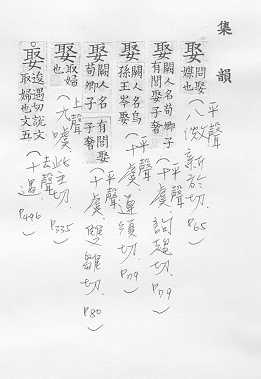 集韻
娶 閭娶
媒也
（平聲
八微 新於切.
P65）
娶 闕人名荀卿子
有閭娶子奢
（平聲
十虞 詢趨切. P79）
娶 闕人名烏
孫王岑娶
（平聲
十虞 遵須切. P79）
娶 闕人名 有閭娶
荀卿子 子奢
（平聲
十虞 雙雛切. P80）
娶 取婦
也
（上聲
九噳 此主切. P335）
娶 逡遇切說文
取婦也文五
（去聲
十遇 P496）